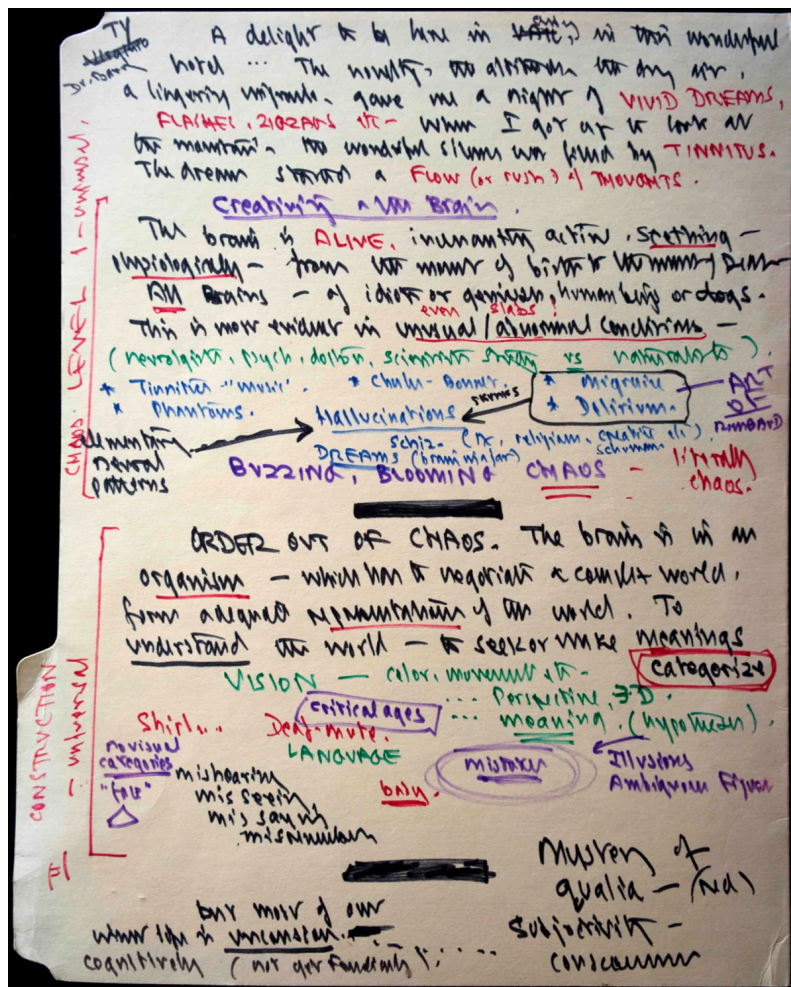 TY
Dr.
A delight to be here in in this wonderful
hotel ... The novelty, the altitude, the dry air,
a lingering migraine, gave me a night of VIVID DREAMS,
FLASHES, ZIGZAGS etc - When I got up to look at
the mountains, the wonderful silence was filled by TINNITUS.
The dream started a FLOW (or rush) of THOUGHTS.
Creativity the Brain.
The brain is ALIVE, incessantly active, Seething -
physiologically - from the moment of birth to the moment of Death
All Brains - of idiots or geniuses, human beings or dogs.
even slabs!
This is most evident in unusual/abnormal conditions -
(neurologists, psych, doctors, scientists study vs naturalists).
* Tinnitus - "music".
* Charles-Bonnet.
* Migraine
* Delirium.
ART
OF
* Phantoms.
Hallucinations
schiz. (TX, religion, creative etc).
DREAMS
elementary
neural
patterns
BUZZING, BLOOMING CHAOS -
literally
chaos.
CHAOS. LEVEL 1 - universal.
ORDER OUT OF CHAOS. The brain is in an
organism - which has to negotiate a complex world,
form adequate representations of the world. To
understand the world - to seek or make meanings
categorize
VISION - color, movement etc -
... Perspective, 3D.
critical ages
... meaning. (hypotheses).
Shirl... Deaf-mute.
LANGUAGE
no visual
categories
mistakes
Illusions
Ambiguous Figures
mishearing
mis seeing
mis saying
misremembering
only.
CONSTRUCTION - universal
II
Mystery of
qualia - (Ned)
subjectivity -
consciousness
but most of our
inner life is unconscious
cognitively